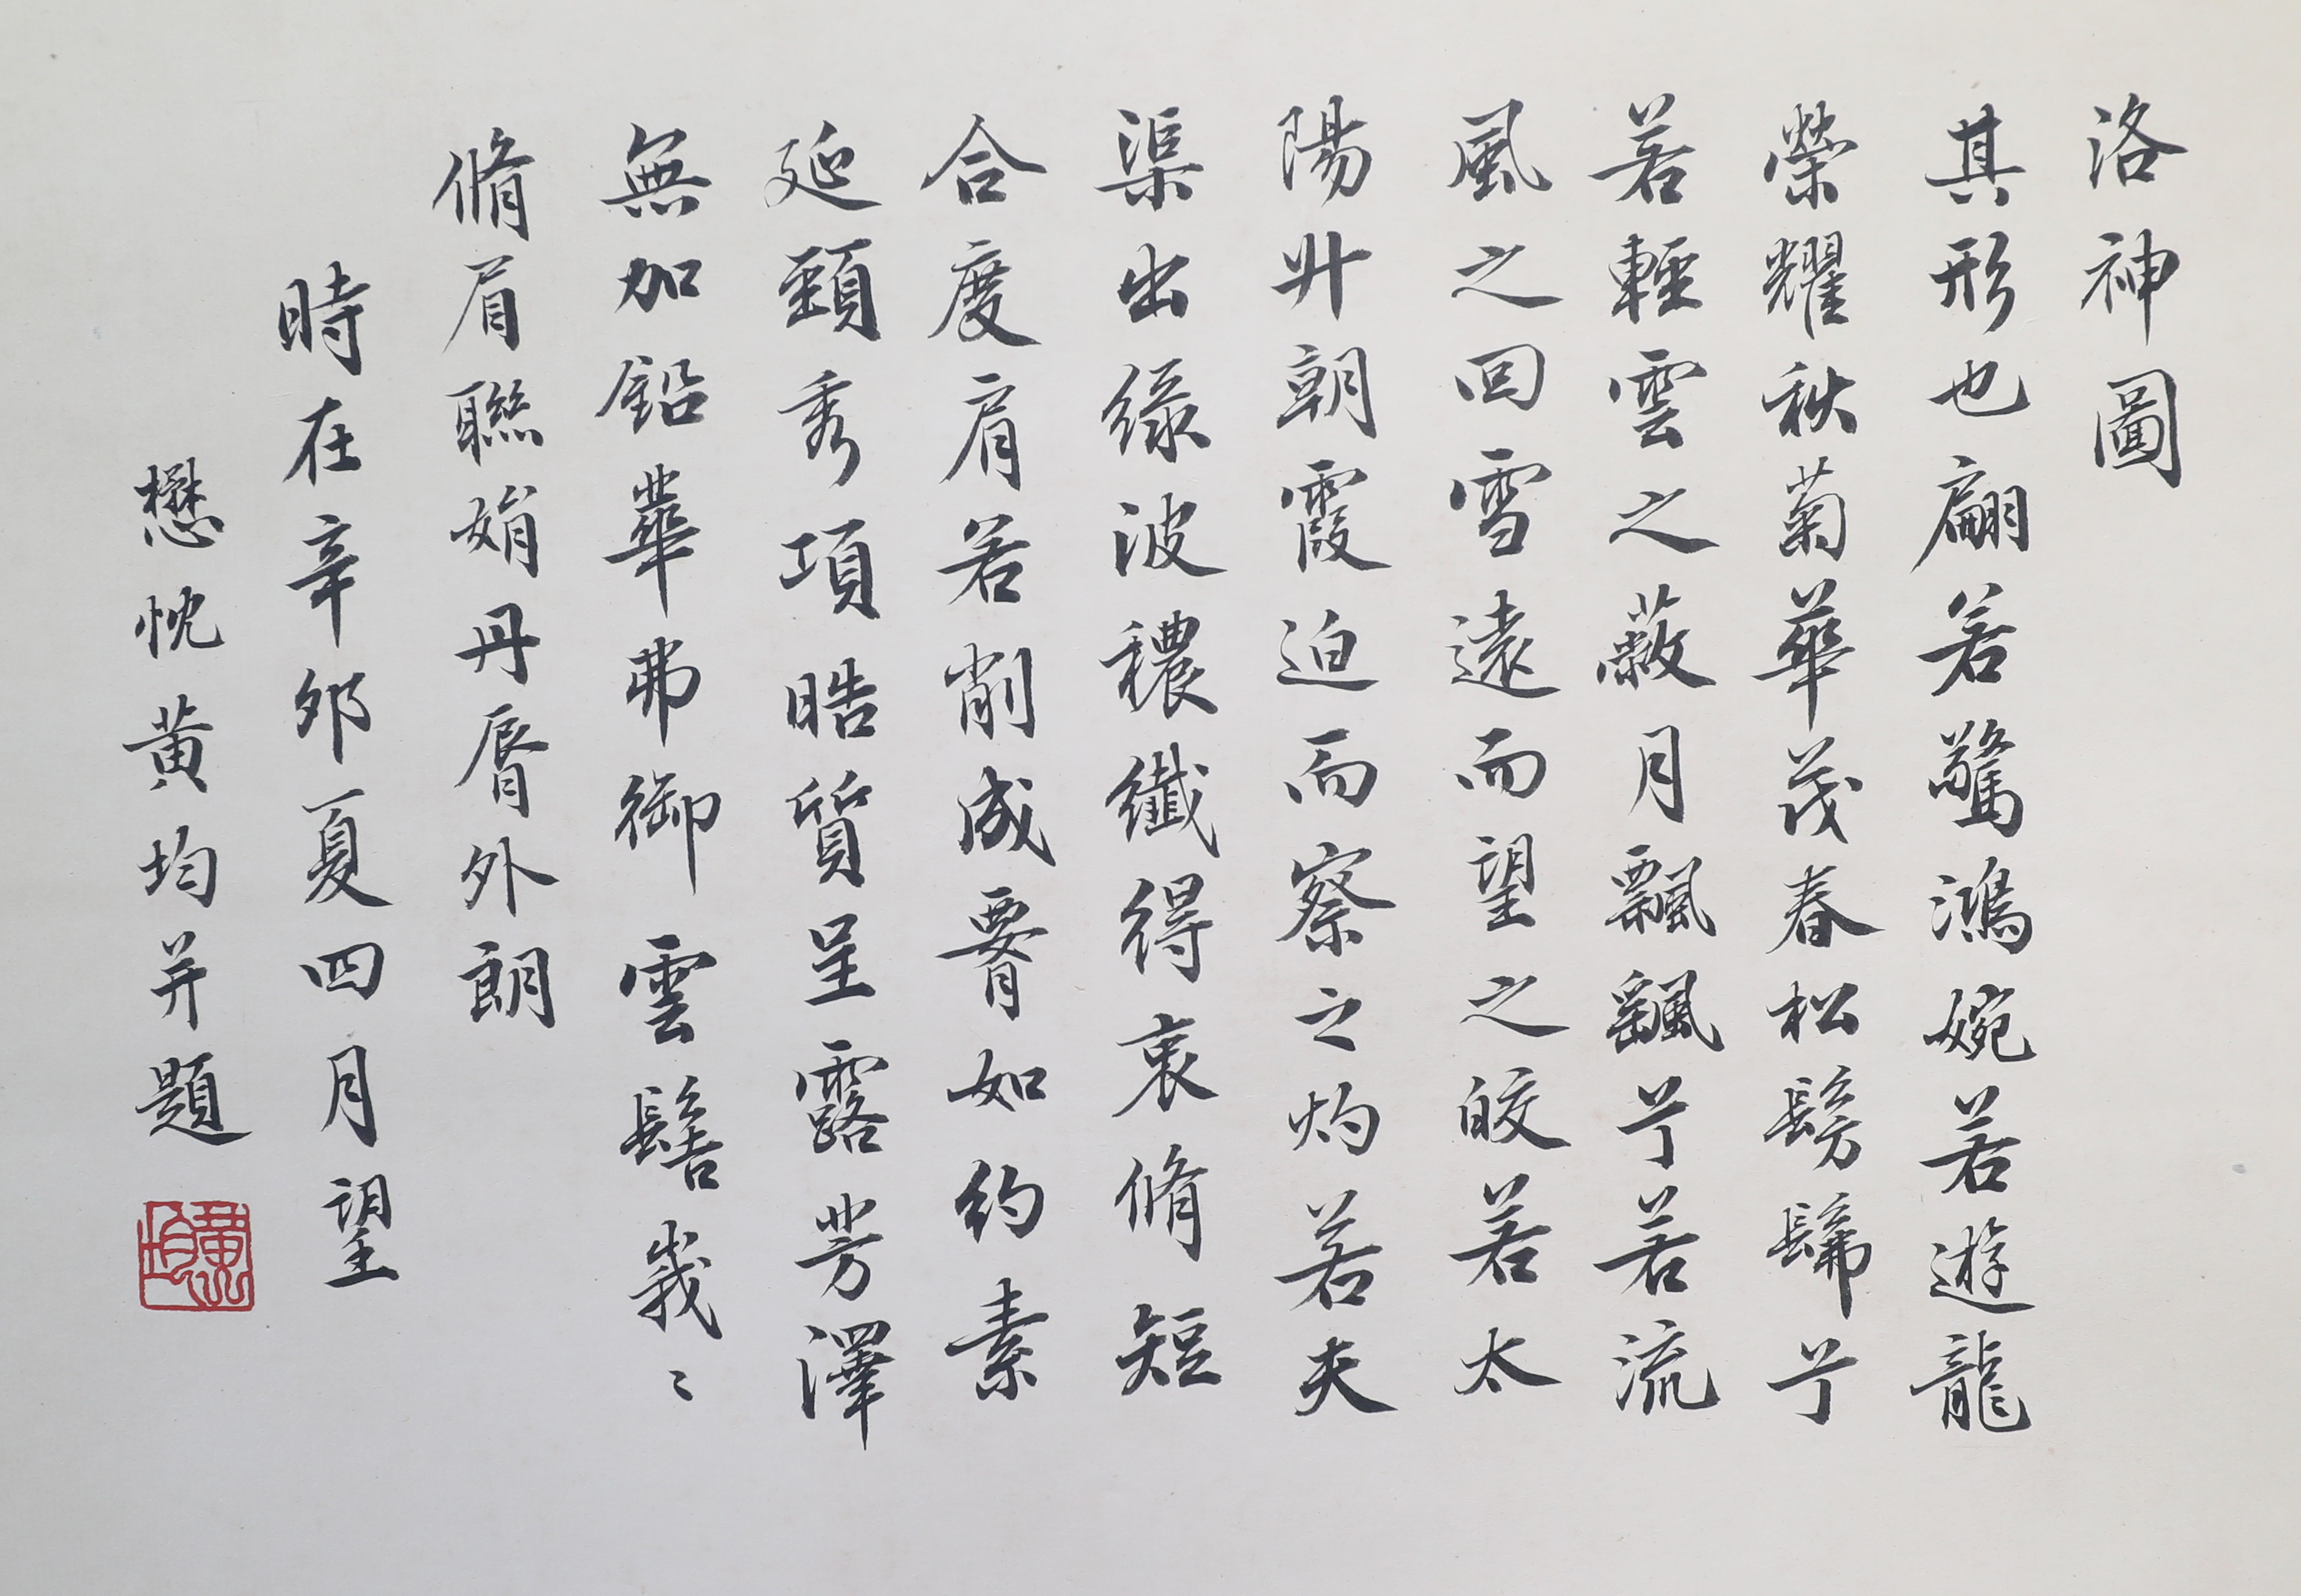 洛神圖
其形也翩若驚鴻婉若遊龍
榮耀秋菊華茂春松髣髴兮
若輕雲之蔽月飄颻兮若流
風之回雪遠而望之皎若太
陽升朝霞迫而察之灼若夫
渠出綠波穠纖得衷脩短
合度肩若削成要如約素
延頸秀項皓質呈露芳澤
無加鉛華弗御雲髻峩〻
脩眉聯娟丹脣外朗
時在辛卯夏四月望
懋忱黄均并題
黄均